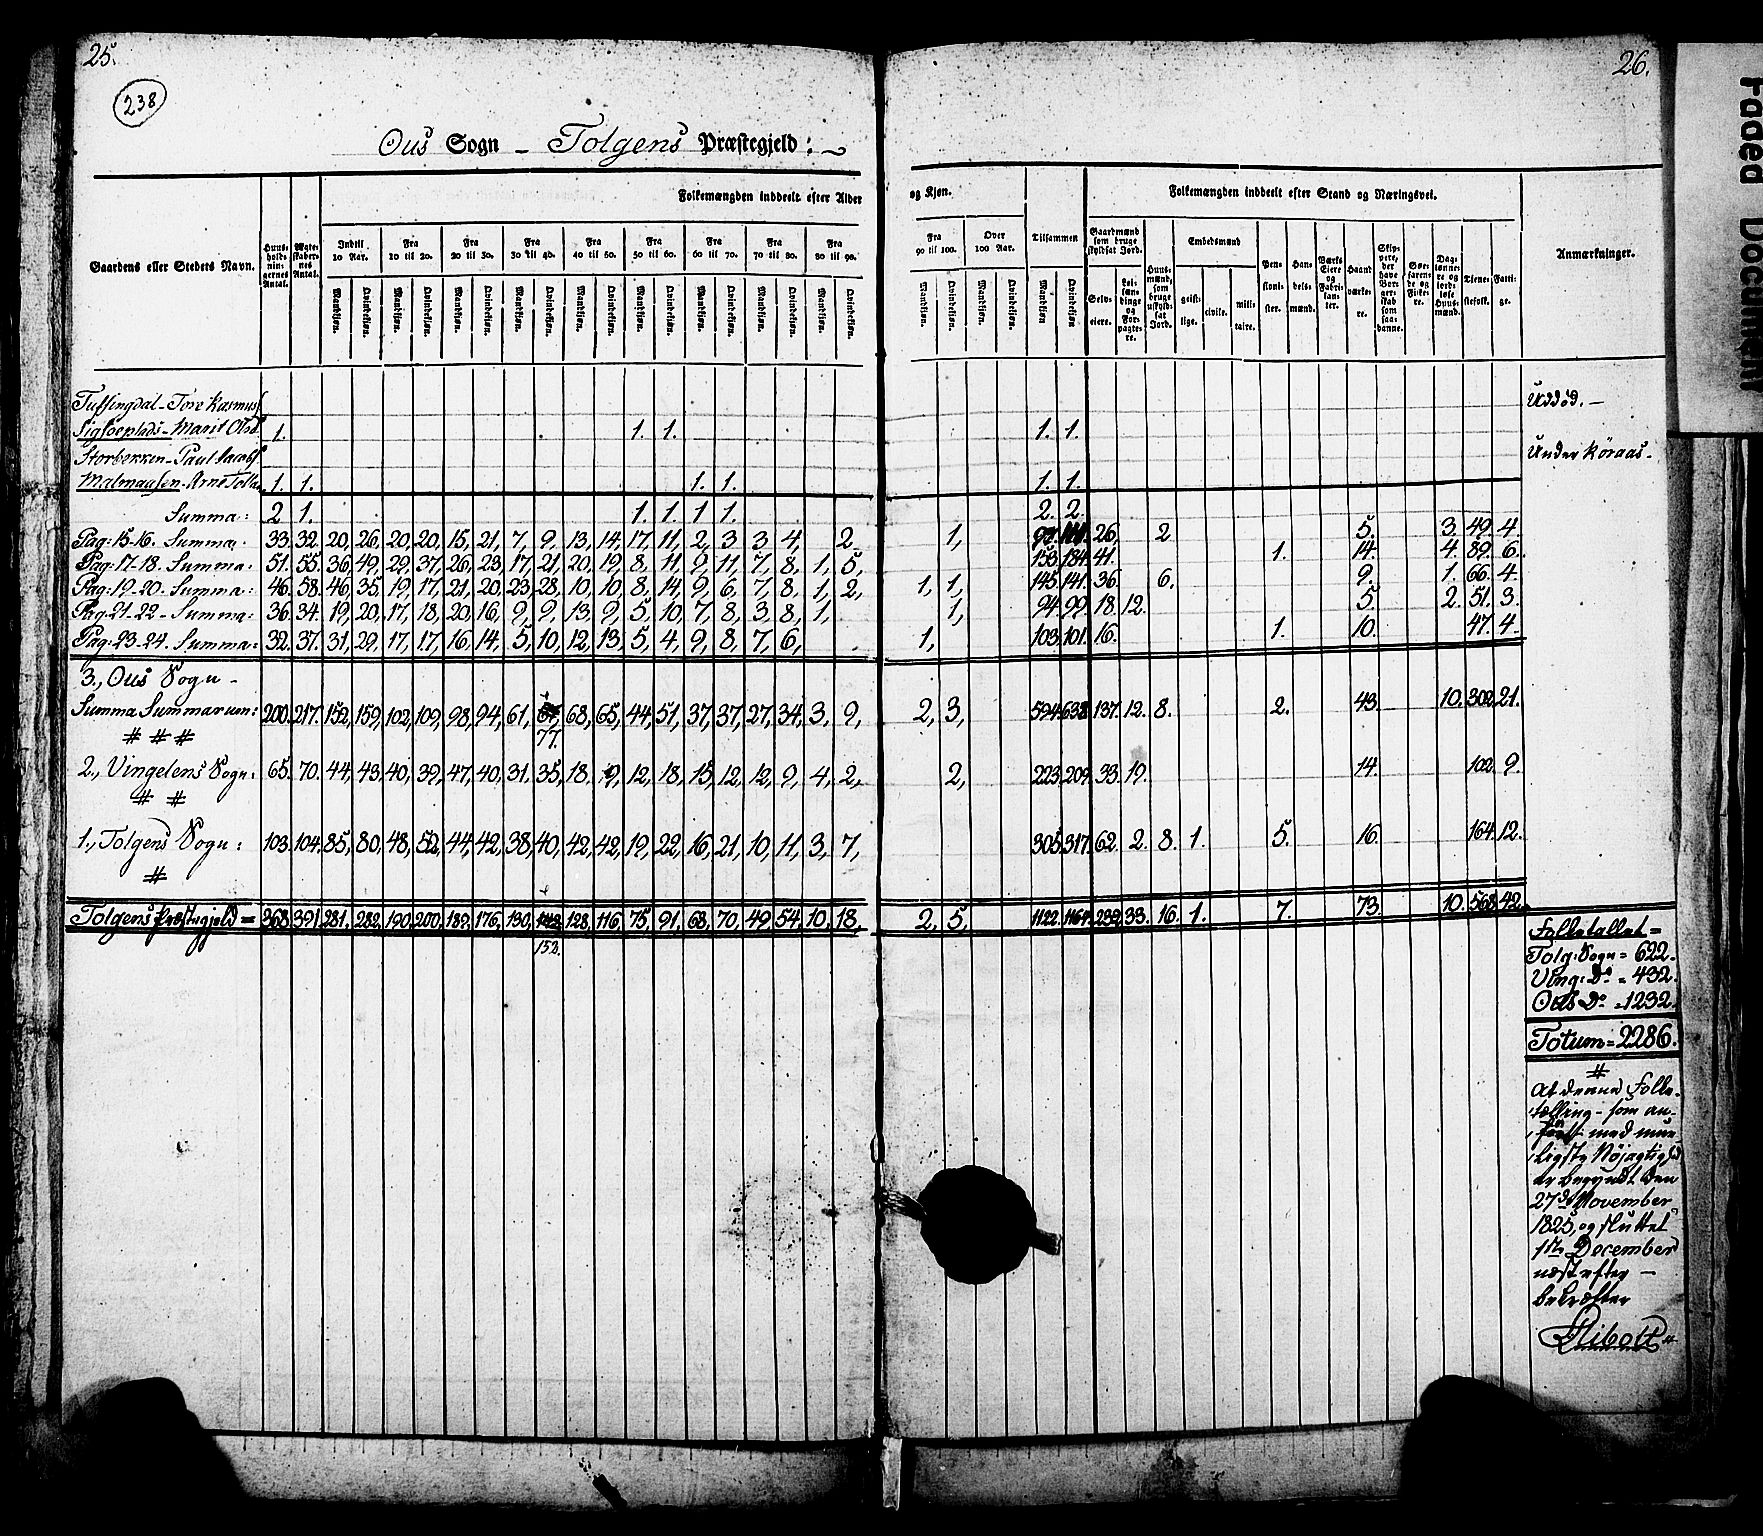 25.
26.
238
Ous Sogn - Tolgens Præstegjeld:
Folkemængden inddeelt efter Alder og Kjøn.
Folkemængden inddeelt efter Stand og Næringsvei.
Gaardens eller Stedets Navn.
Huusholdningernes Antal.
Ægteskabernes Antal.
Indtil 10 Aar.
Fra 10 til 20.
Fra 20 til 30.
Fra 30 til 40.
Fra 40 til 50.
Fra 50 til 60.
Fra 60 til 70.
Fra 70 til 80.
Fra 80 til 90.
Fra 90 til 100.
Over 100 Aar.
Tilsammen
Mandkjøn. Qvindekjøn.
Gaardmænd som bruge skyldsat Jord.
Selveiere.
Leilændinge og Forpagtere.
Huusmænd, som bruge uskyldsat Jord.
Embedsmænd
geistlige.
civile.
militaire.
Pensionister.
Handelsmænd.
Værks Eiere og Fabrikanter.
Haandværkere.
Skippere, der have Borgerskab som saadanne.
Søefarende og Fiskere.
Dagslønnere og jordløse Huusmænd.
Tienestefolk.
Fattige.
Anmærkninger.
Tufsingdal - Tore Rasmuss Uddød. -
Sigtoeplads - Marit Olsd 1. 1. 1. 1. 1.
Storbekken - Paul Jacobs Under Røraas -
Malmaasen - Arne Tolla 1. 1. 1. 1. 1. 1.
Summa: 2 1. 1. 1. 1. 1. 2. 2.
Pag: 15-16. Summa: 33. 32. 20, 26, 20, 20, 15, 21, 7, 9, 13, 14, 17, 11, 2, 3, 3, 4, 2, 1, 26, 2 5. 3. 49. 4.
Pag: 17-18. Summa: 51. 55. 36, 49, 29, 37, 26, 23, 17, 21, 20, 19, 8, 11, 9, 11, 7, 8, 1, 5, 153. 184. 41. 1. 14. 4. 89. 6.
Pag: 19-20. Summa: 46. 58. 46, 35, 19, 17, 21, 20, 23, 28, 10, 10, 8, 14, 9, 6, 7, 8, 1, 2, 1, 1, 145. 141. 36. 6. 9. 1. 66. 4.
Pag: 21-22. Summa: 36. 34. 19, 20, 17, 18, 20, 16, 9, 9, 13, 9, 5, 10, 7, 8, 3, 8, 1, 1, 94. 99. 18. 12. 5. 2. 51. 3.
Pag: 23-24. Summa: 32. 37. 31, 29, 17, 17, 16, 14, 5, 10, 12, 13, 5, 4, 9, 8, 7, 6, 1, 103. 101. 16. 1. 10. 47. 4.
3., Ous Sogn -
Summa Summarum: 200. 217. 152, 159, 102, 109, 98, 94, 61, 68, 65, 44, 51, 37, 37, 27, 34, 3, 9, 2, 3, 594. 638. 137. 12. 8. 2. 43. 10. 302. 21.
# # # 77.
2., Vingelens Sogn: 65. 70. 44, 43, 40, 39, 47, 40, 31, 35, 18, 9, 12, 18, 15, 12, 12, 9, 4, 2, 2, 223. 209. 33. 19. 14. 102. 9.
# #
1., Tolgens Sogn: 103. 104. 85, 80, 48, 52, 44, 42, 38, 40, 42, 42, 19, 22, 16, 21, 10, 11, 3, 7, 305. 317. 62. 2. 8. 1. 5. 16. 164. 12.
#
Tolgens Præstegjeld = 368. 391. 281, 282, 190, 200, 189, 176, 130, 128, 116, 75, 91, 68, 70, 49, 54, 10, 18, 2, 5, 1122. 1164. 232. 33. 16. 1. 7. 73. 10. 568. 42.
152.
Folketallet =
Tolg: Sogn = 622.
Ving: Do = 432.
Ous Do = 1232.
Totum = 2286.
#
At denne Folke-
tælling - som an-
ført med mue-
ligste Nøjagtighed
er begyndt den
27de November
1825, og sluttet
1ste December
næst efter -
bekræfter
Stibolt
Faded Document